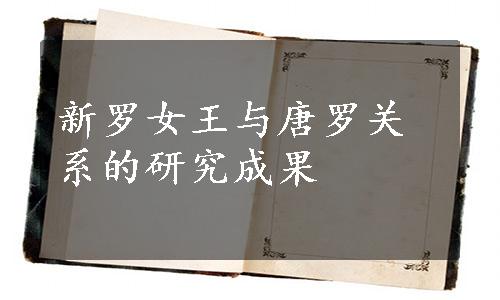 新罗女王与唐罗关
系的研究成果